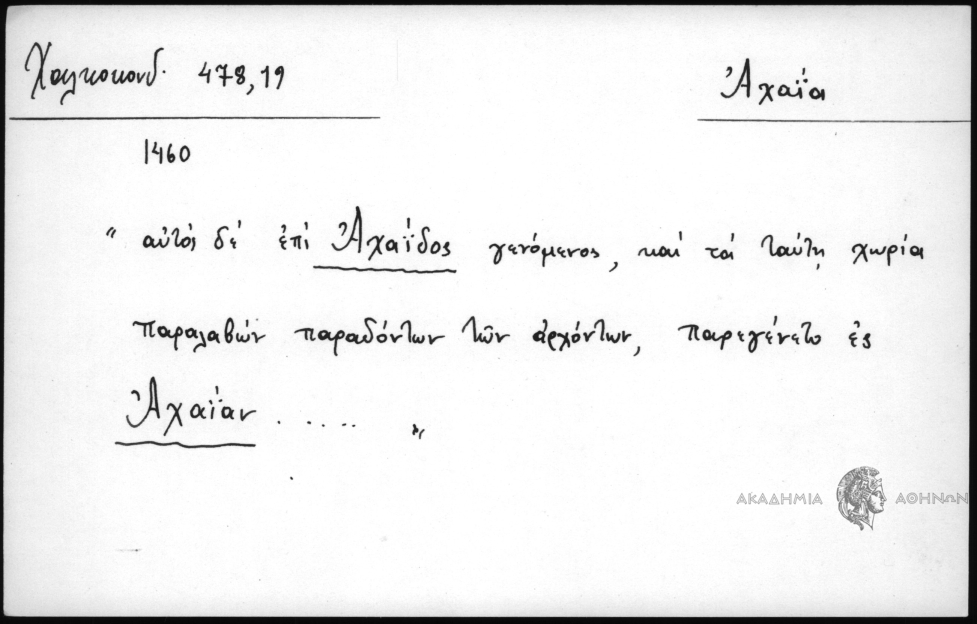 Χαλκοκονδ. 478,19
Ἀχαΐα
1460
" αὐτός δέ ἐπί Ἀχαΐδος γενόμενος, καί τά ταύτῃ χωρία
παραλαβών παραδόντων τῶν ἀρχόντων, παρεγένετο ἐς
Ἀχαΐαν . . . . . . "
ΑΚΑΔΗΜΙΑ ΑΘΗΝΩΝ